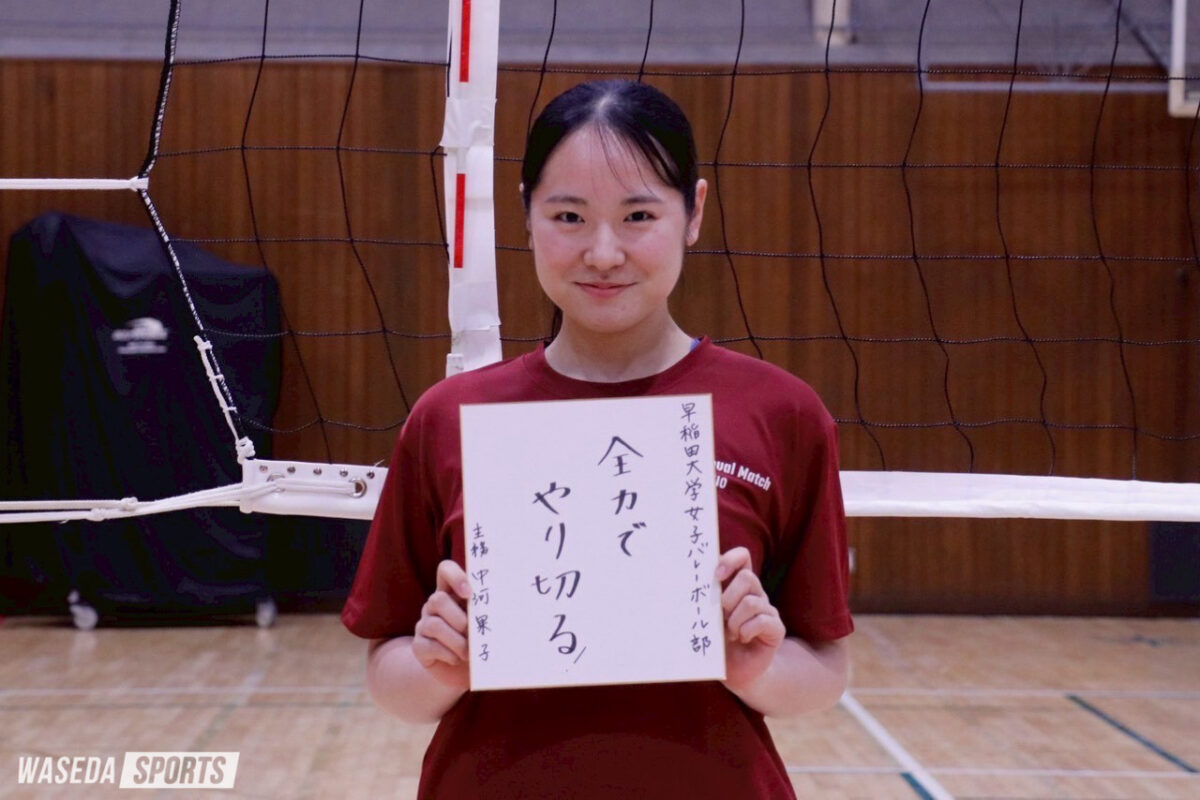 早稲田大学女子バレーボール部
全力で
やり切る
主務 中河果子
ual Match
10
WASEDA SPORTS